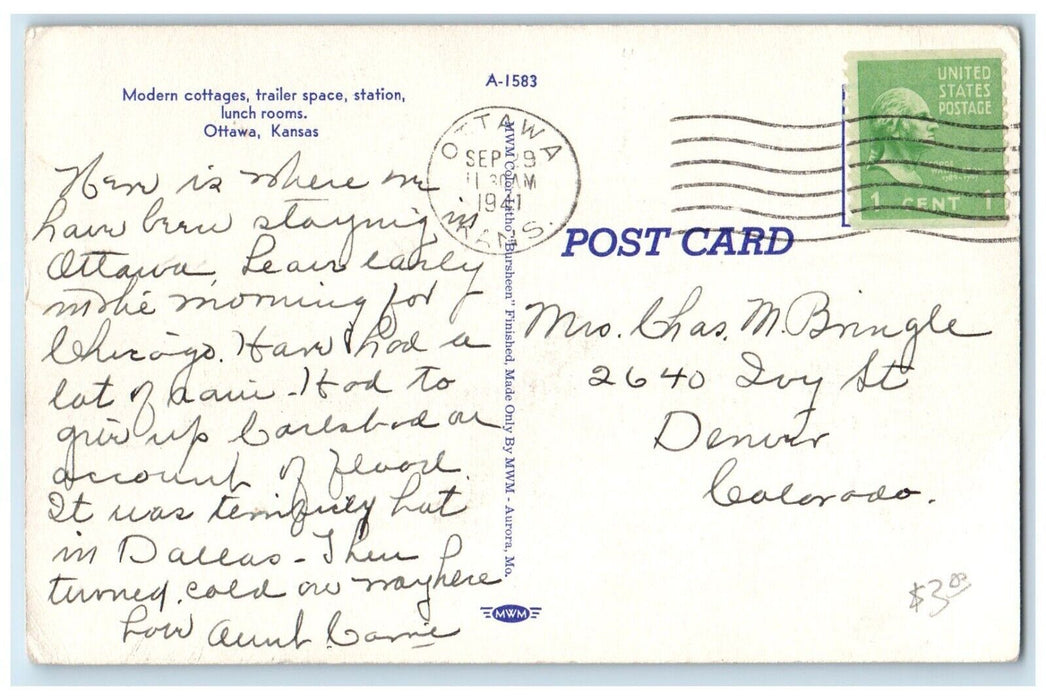 A-1583
Modern cottages, trailer space, station,
lunch rooms.
Ottawa, Kansas
Here is where we
have been staying in
Ottawa. Leave early
in the morning for
Chicago. Have had a
lot of rain - Had to
give up Carlsbad on
account of flood.
It was terribly hot
in Dallas - Then
turned cold on way here
Love Aunt Carrie
MWM Color-Litho "Bursheen" Finished, Made Only By MWM - Aurora, Mo.
MWM
OTTAWA
SEP 9
11 30 AM
1941
KANS.
UNITED
STATES
POSTAGE
1 CENT 1
POST CARD
Mrs. Chas. M. Bringle
2640 Ivy St
Denver
Colorado.
$3.00